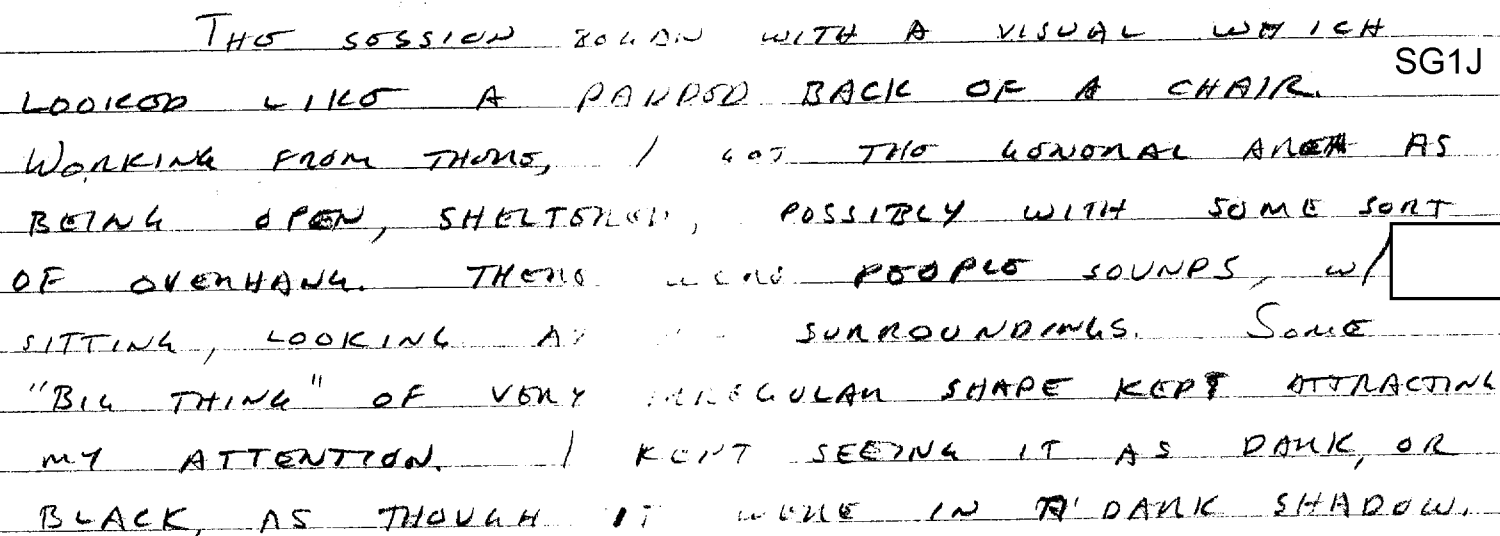 THE SESSION BEGAN WITH A VISUAL WHICH
SG1J
LOOKED LIKE A PADDED BACK OF A CHAIR.
WORKING FROM THERE, I GOT THE GENERAL AREA AS
BEING OPEN, SHELTERED, POSSIBLY WITH SOME SORT
OF OVERHANG. THERE WERE PEOPLE SOUNDS, W/
SITTING, LOOKING AT SURROUNDINGS. SOME
"BIG THING" OF VERY IRREGULAR SHAPE KEPT ATTRACTING
MY ATTENTION. I KEPT SEEING IT AS DARK, OR
BLACK, AS THOUGH IT WERE IN A DARK SHADOW.